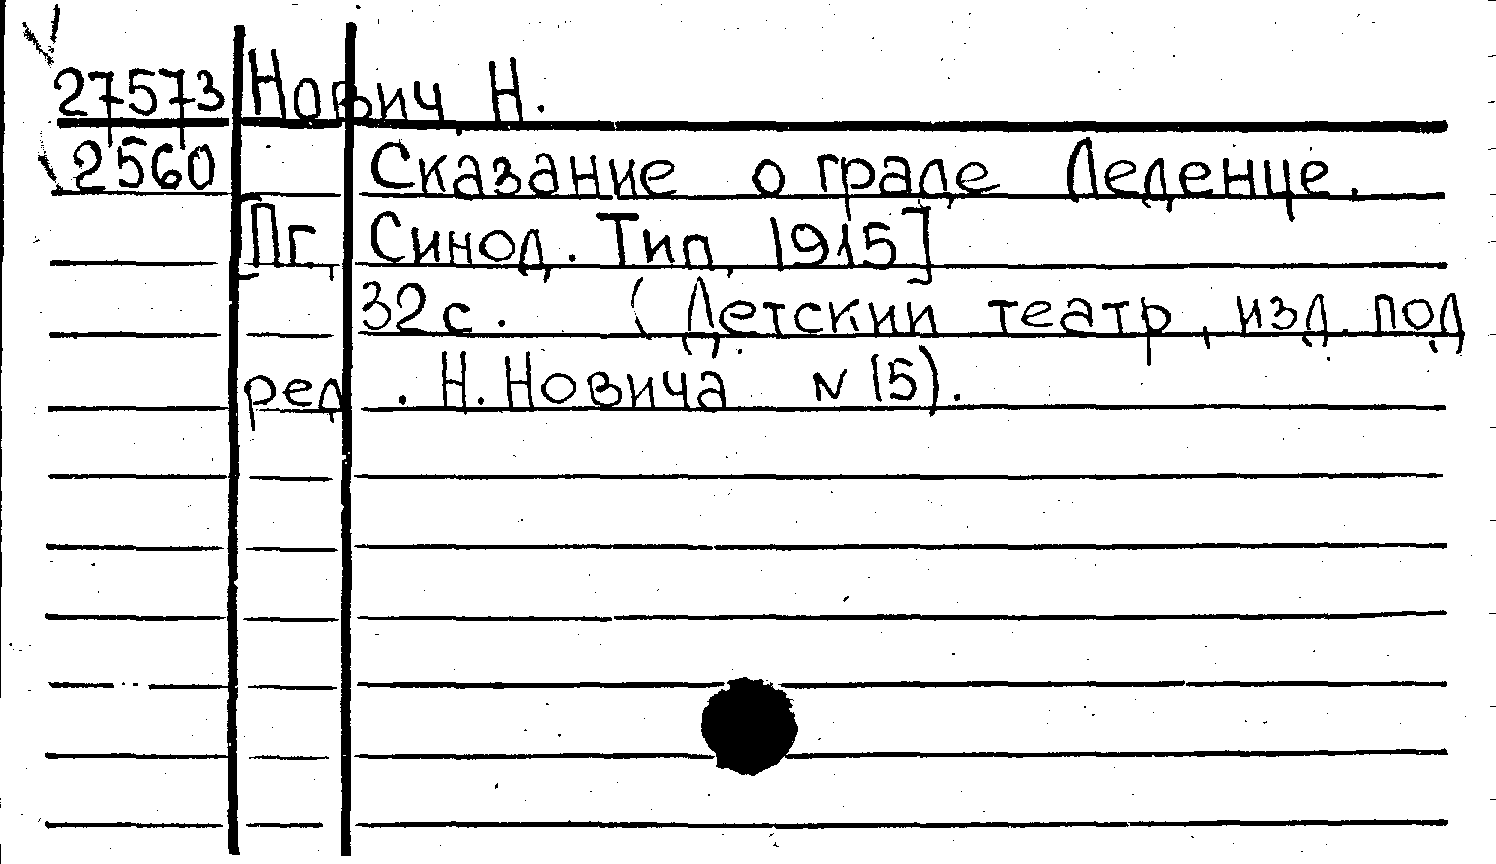 27573 Нович Н.
2560 Сказание о граде Леденце.
[Пг, Синод. Тип, 1915]
32 с. (Детский театр, изд. под
ред. Н. Новича N 15).